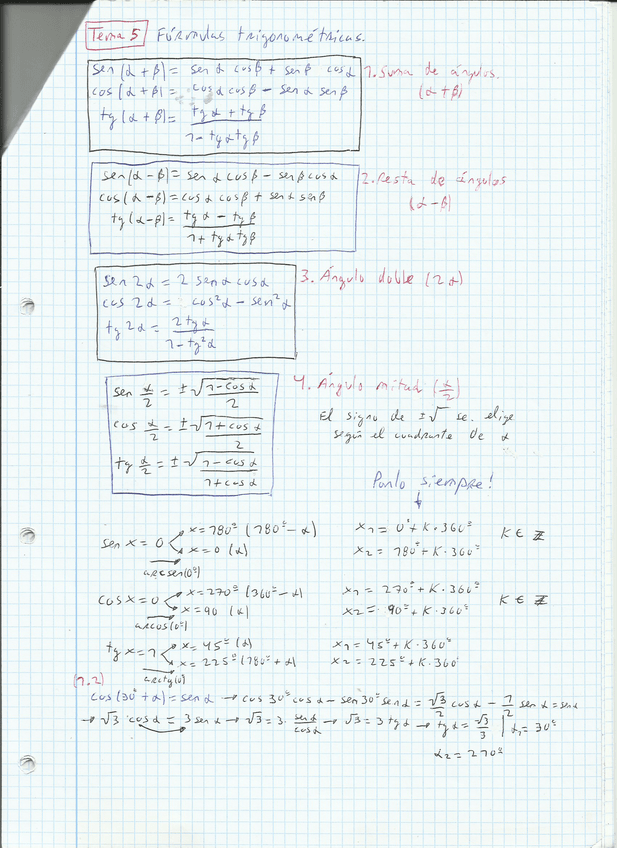 Tema 5 Fórmulas trigonométricas.
sen (α + β) = sen α cos β + sen β cos α
cos (α + β) = cos α cos β − sen α sen β
tg (α + β) = (tg α + tg β) / (1 − tg α tg β)
1. Suma de ángulos.
(α + β)
sen (α − β) = sen α cos β − sen β cos α
cos (α − β) = cos α cos β + sen α sen β
tg (α − β) = (tg α − tg β) / (1 + tg α tg β)
2. Resta de ángulos
(α − β)
sen 2α = 2 sen α cos α
cos 2α = cos² α − sen² α
tg 2α = 2 tg α / (1 − tg² α)
3. Ángulo doble (2α)
sen α/2 = ± √((1 − cos α) / 2)
cos α/2 = ± √((1 + cos α) / 2)
tg α/2 = ± √((1 − cos α) / (1 + cos α))
4. Ángulo mitad (α/2)
El signo de ± √ se elige
según el cuadrante de α
Ponlo siempre!
↓
sen x = 0
x = 180º (180º − α)
x = 0 (α)
arcsen(0º)
x₁ = 0º + K · 360º
x₂ = 180º + K · 360º
K ∈ ℤ
cos x = 0
x = 270º (360º − α)
x = 90 (α)
arcos(0º)
x₁ = 270º + K · 360º
x₂ = 90º + K · 360º
K ∈ ℤ
tg x = 1
x = 45º (α)
x = 225º (180º + α)
arctg(0)
x₁ = 45º + K · 360º
x₂ = 225º + K · 360º
(1.2)
cos (30º + α) = sen α → cos 30º cos α − sen 30º sen α = √3/2 cos α − 1/2 sen α = sen α
→ √3 · cos α = 3 sen α → √3 = 3 · sen α / cos α → √3 = 3 tg α → tg α = √3/3 | α₁ = 30º
α₂ = 210º